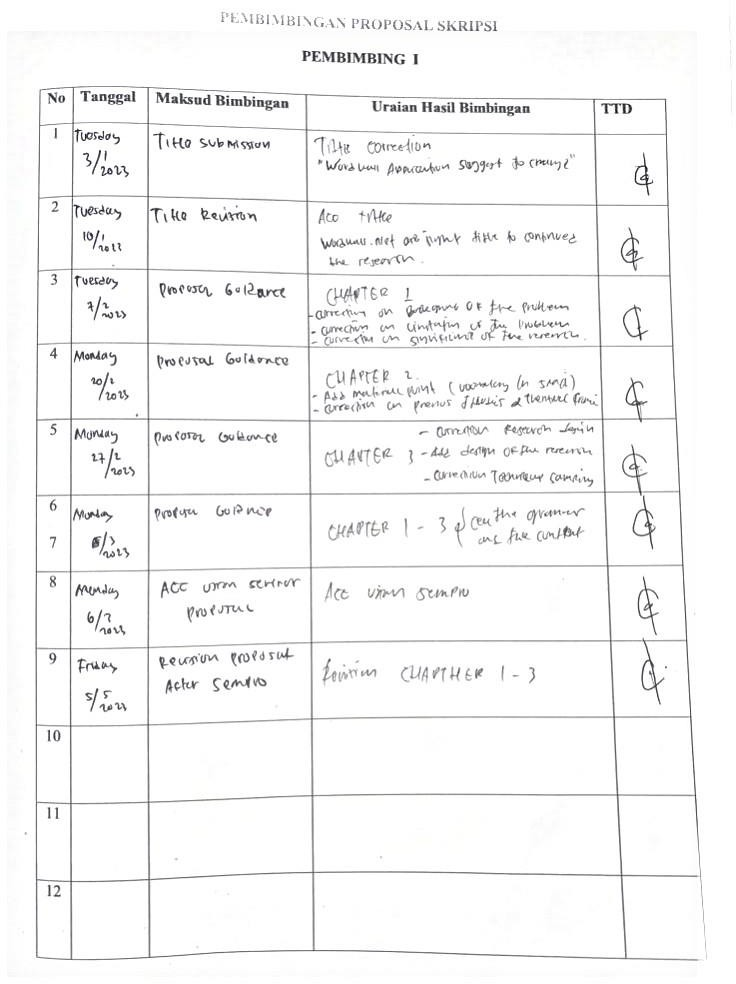 PEMBIMBINGAN PROPOSAL SKRIPSI
PEMBIMBING I
No Tanggal Maksud Bimbingan Uraian Hasil Bimbingan TTD
1 Tuesday 3/1 2023 Title submission
Title correction
"Wordwall Application suggest to change"
2 Tuesday 10/1 2023 Title Revision
Acc title
Wordwall.net are right title to continued
the research.
3 Tuesday 7/2 2023 Proposal Guidance
CHAPTER 1
- correction on background of the problem
- correction on limitation of the problem
- correction on significance of the research.
4 Monday 20/2 2023 Proposal Guidance
CHAPTER 2.
- Add material point (vocabulary in SMA)
- correction on previous thesis &
5 Monday 27/2 2023 Proposal Guidance
- correction Research design
CHAPTER 3 - Add design of the research
- correction Technique sampling
6 Monday /3 2023 Proposal Guidance
7
CHAPTER 1 - 3 the grammar
and the content
8 Monday 6/3 2023 ACC ujian seminar
proposal
Acc ujian sempro
9 Friday 5/5 2023 Revision proposal
After sempro
Revision CHAPTHER 1 - 3
10
11
12